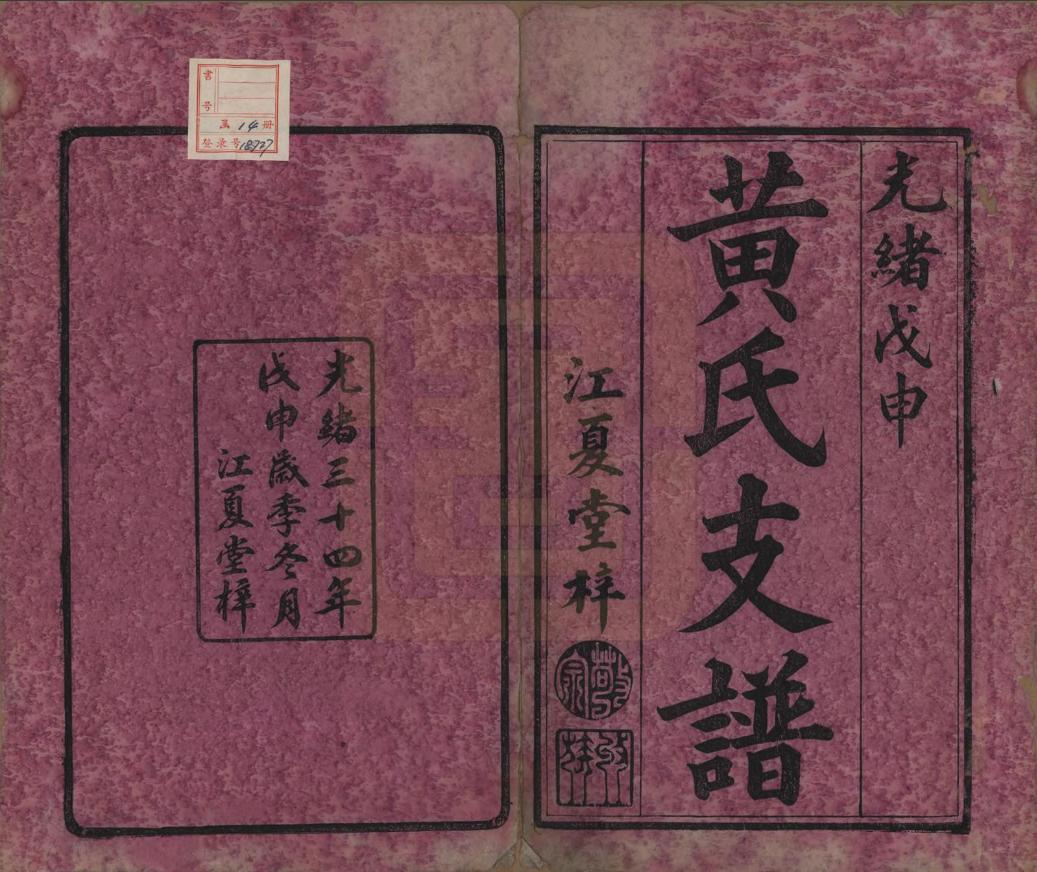 光緒戊申
黄氏支譜
江夏堂梓
敬宗
收族
光緒三十四年
戊申歲季冬月
江夏堂梓
書號
14 册
登录号 18727